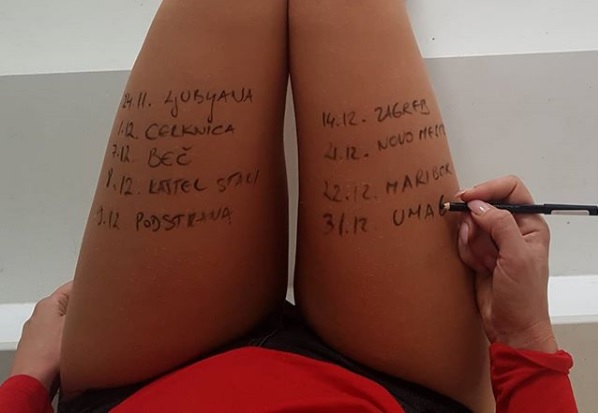 24.11. LJUBLJANA
1.12. CERKNICA
7.12. BEČ
8.12. KAŠTEL STARI
9.12. PODSTRANA
14.12. ZAGREB
21.12. NOVO MESTO
22.12. MARIBOR
31.12. UMAG